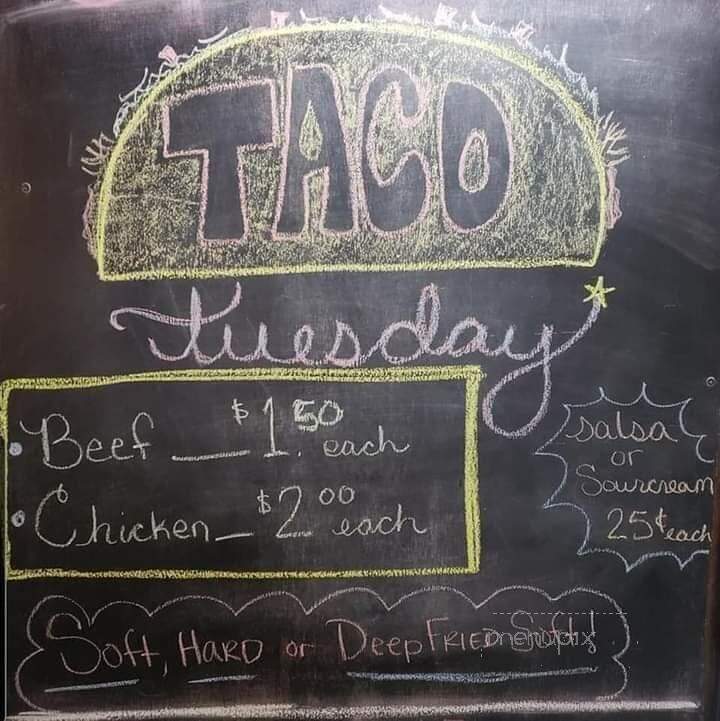 TACO
tuesday
Beef $1.50 each
Chicken $2.00 each
Salsa
or
Sourcream
25¢ each
Soft, HARD or DEEP FRIED Soft!